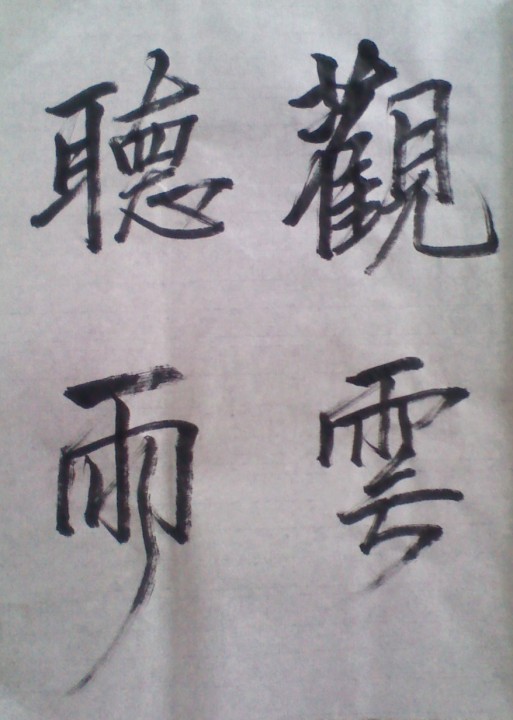 觀雲
聽雨